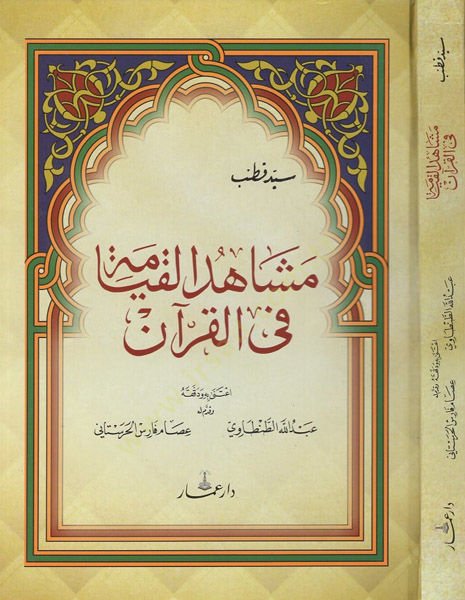 سيد قطب
مشاهد القيامة
في القرآن
اعتنى به ودققه
وقدم له
عبد الله الطنطاوي
عصام فارس الحرستاني
دار عمار
سيد قطب
مشاهد القيامة
في القرآن
عبد الله الطنطاوي
اعتنى به ودققه وقدم له
عصام فارس الحرستاني
دار عمار